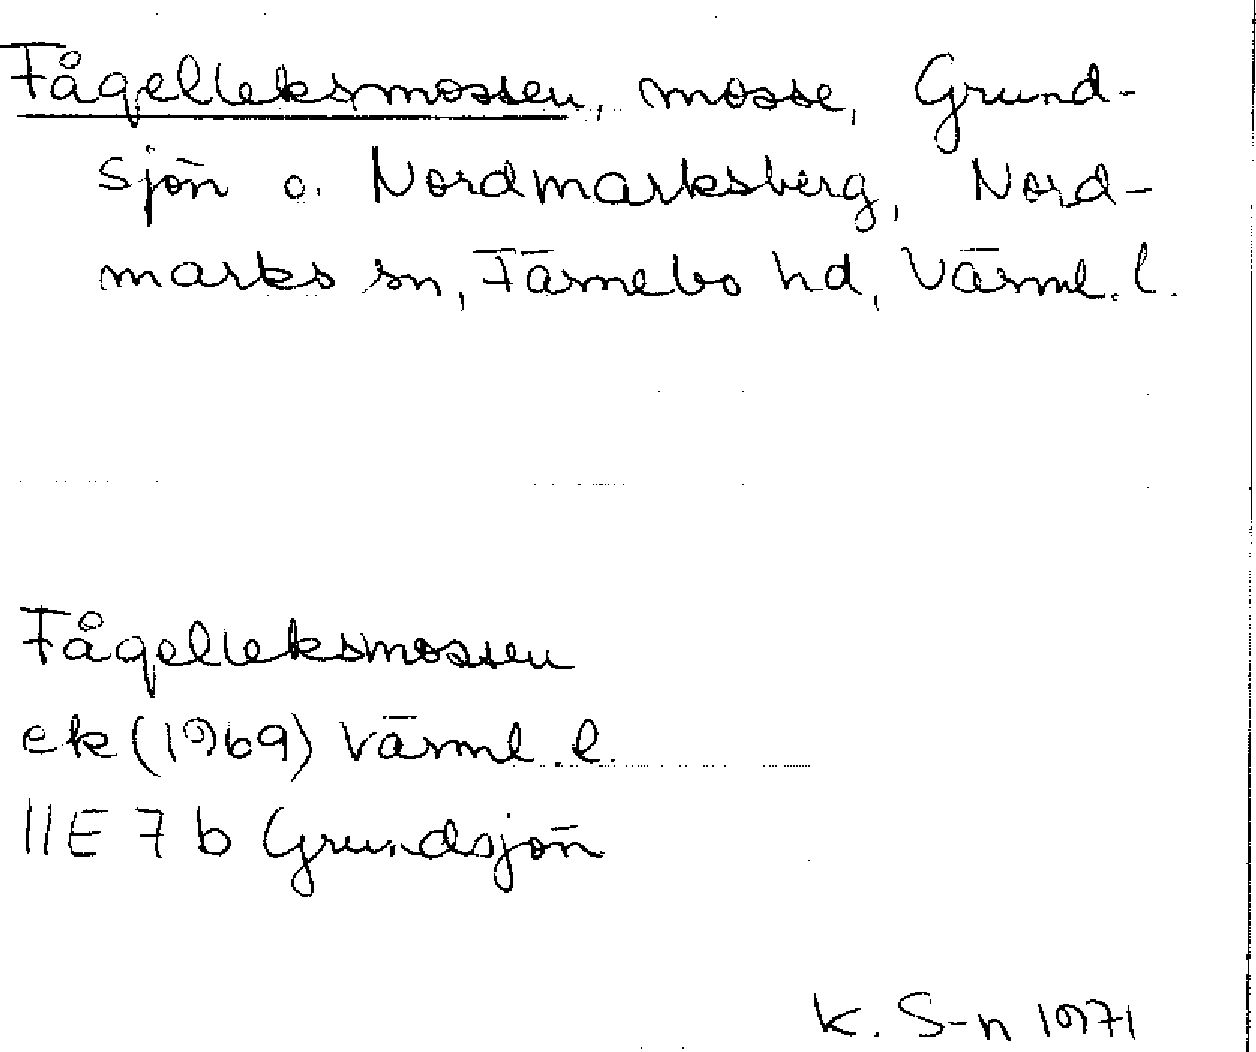 Fågelleksmossen, mosse, Grund-
sjön o. Nordmarksberg, Nord-
marks sn, Färnebo hd, Värml. l.
Fågelleksmossen
ek (1969) Värml. l.
11E 7 b Grundsjön
K. S-n 1971